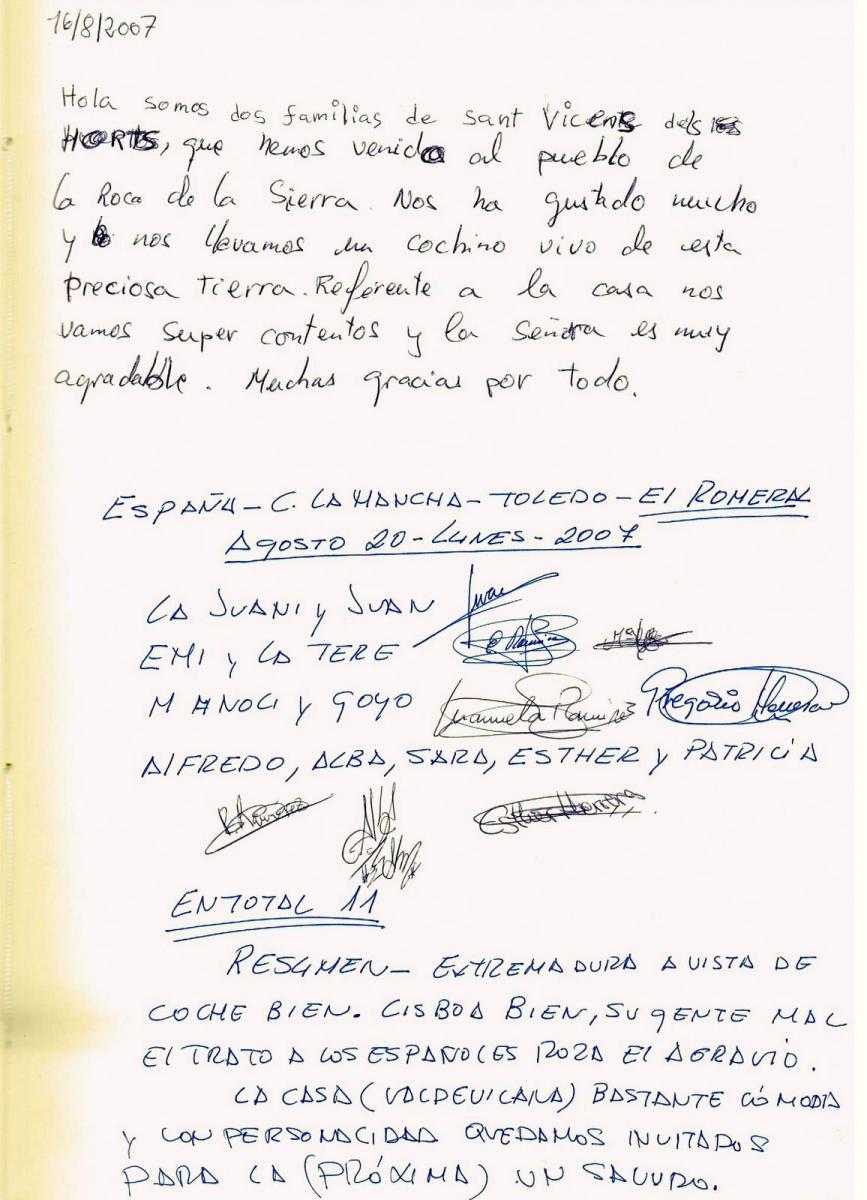 16/8/2007
Hola somos dos familias de Sant Vicents dels
HORTS, que hemos venido al pueblo de
La Roca de la Sierra. Nos ha gustado mucho
y nos llevamos un cochino vivo de esta
preciosa tierra. Referente a la casa nos
vamos super contentos y la señora es muy
agradable. Muchas gracias por todo.
ESPAÑA - C. LA MANCHA - TOLEDO - El ROMERAL
AGOSTO 20 - LUNES - 2007
LA JUANI y JUAN Juan
EMI y LA TERE
MANOLI y GOYO Manuela Ramirez Gregorio Herrera
AlFREDO, ALBA, SARA, ESTHER y PATRICIA
Esther Herrera
EN TOTAL 11
RESUMEN - EXTREMADURA A VISTA DE
COCHE BIEN. LISBOA BIEN, SU GENTE MAL
El TRATO A LOS ESPAÑOLES ROZA El AGRAVIO.
LA CASA (VALDEVILANA) BASTANTE CÓMODA
y CON PERSONALIDAD QUEDAMOS INVITADOS
PARA LA (PRÓXIMA) UN SALUDO.